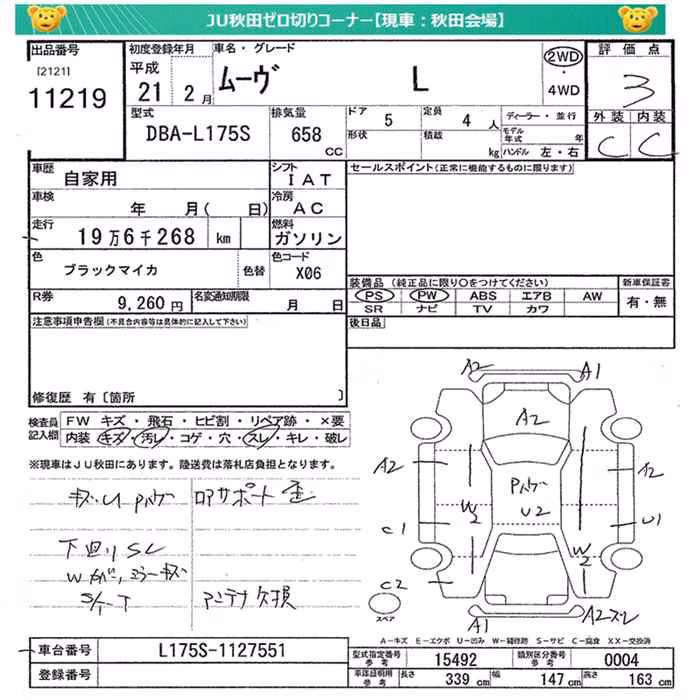 JU秋田ゼロ切りコーナー【現車：秋田会場】
出品番号 初度登録年月 車名・グレード 評価点
[2121] 平成 ムーヴ L 2WD 3
11219 21 2月 ・4WD 外装 内装
型式 排気量 ドア 5 定員 4 人 ディーラー・並行 C C
DBA-L175S 658 CC 形状 積載 kg モデル年式 年 ハンドル 左・右
車歴 自家用 シフト IAT セールスポイント(正常に機能するものに限ります)
車検 年 月( 日) 冷房 AC
走行 19万6千268 km 燃料 ガソリン
色 ブラックマイカ 色替 色コード X06
装備品 (純正品に限り○をつけてください) 新車保証書
R券 9,260円 名変通知期限 月 日 PS PW ABS エアB AW 有・無
SR ナビ TV カワ
注意事項申告欄(不具合内容等は具体的に記入して下さい) 後日品
修復歴 有〔箇所 〕
A2 A1
検査員記入欄 FW キズ・飛石・ヒビ割・リペア跡・×要
内装 キズ・汚レ・コゲ・穴・スレ・キレ・破レ
A2
※現車はJU秋田にあります。陸送費は落札店負担となります。
A2 A2
キズU Pハゲ ロアサポート歪
Pハゲ U2
W2
C1 U1
下廻りSC
W2
Wガビ、ミラーキズ
C2
S/T アンテナ欠損
スペア
A1 A2スレ
A－キズ E－エクボ U－凹み W－補修跡 S－サビ C－腐食 XX－交換済
車台番号 L175S-1127551 型式指定番号 参考 15492 類別区分番号 参考 0004
登録番号 車庫証明用 参考 長さ 339 cm 幅 147 cm 高さ 163 cm